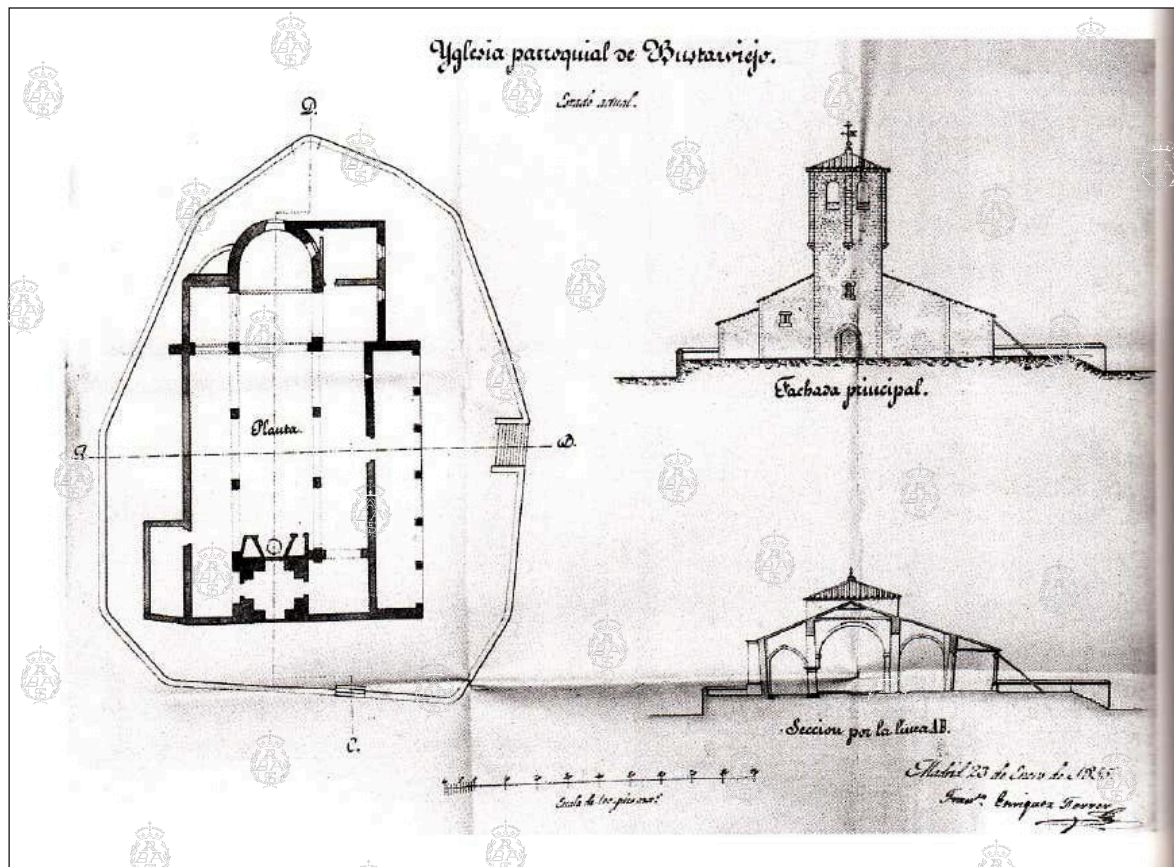 Yglesia parroquial de Bustarviejo.
Estado actual.
D.
Planta.
A.
B.
C.
Fachada principal.
Seccion por la linea AB.
Escala de 100 pies
Madrid 23 de Enero de
Fran.co Enriquez Ferrer